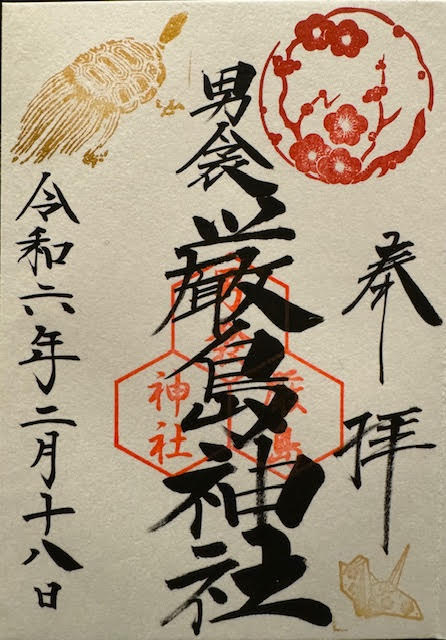 奉拝
男衾
厳島神社
令和六年二月十八日
厳島
神社